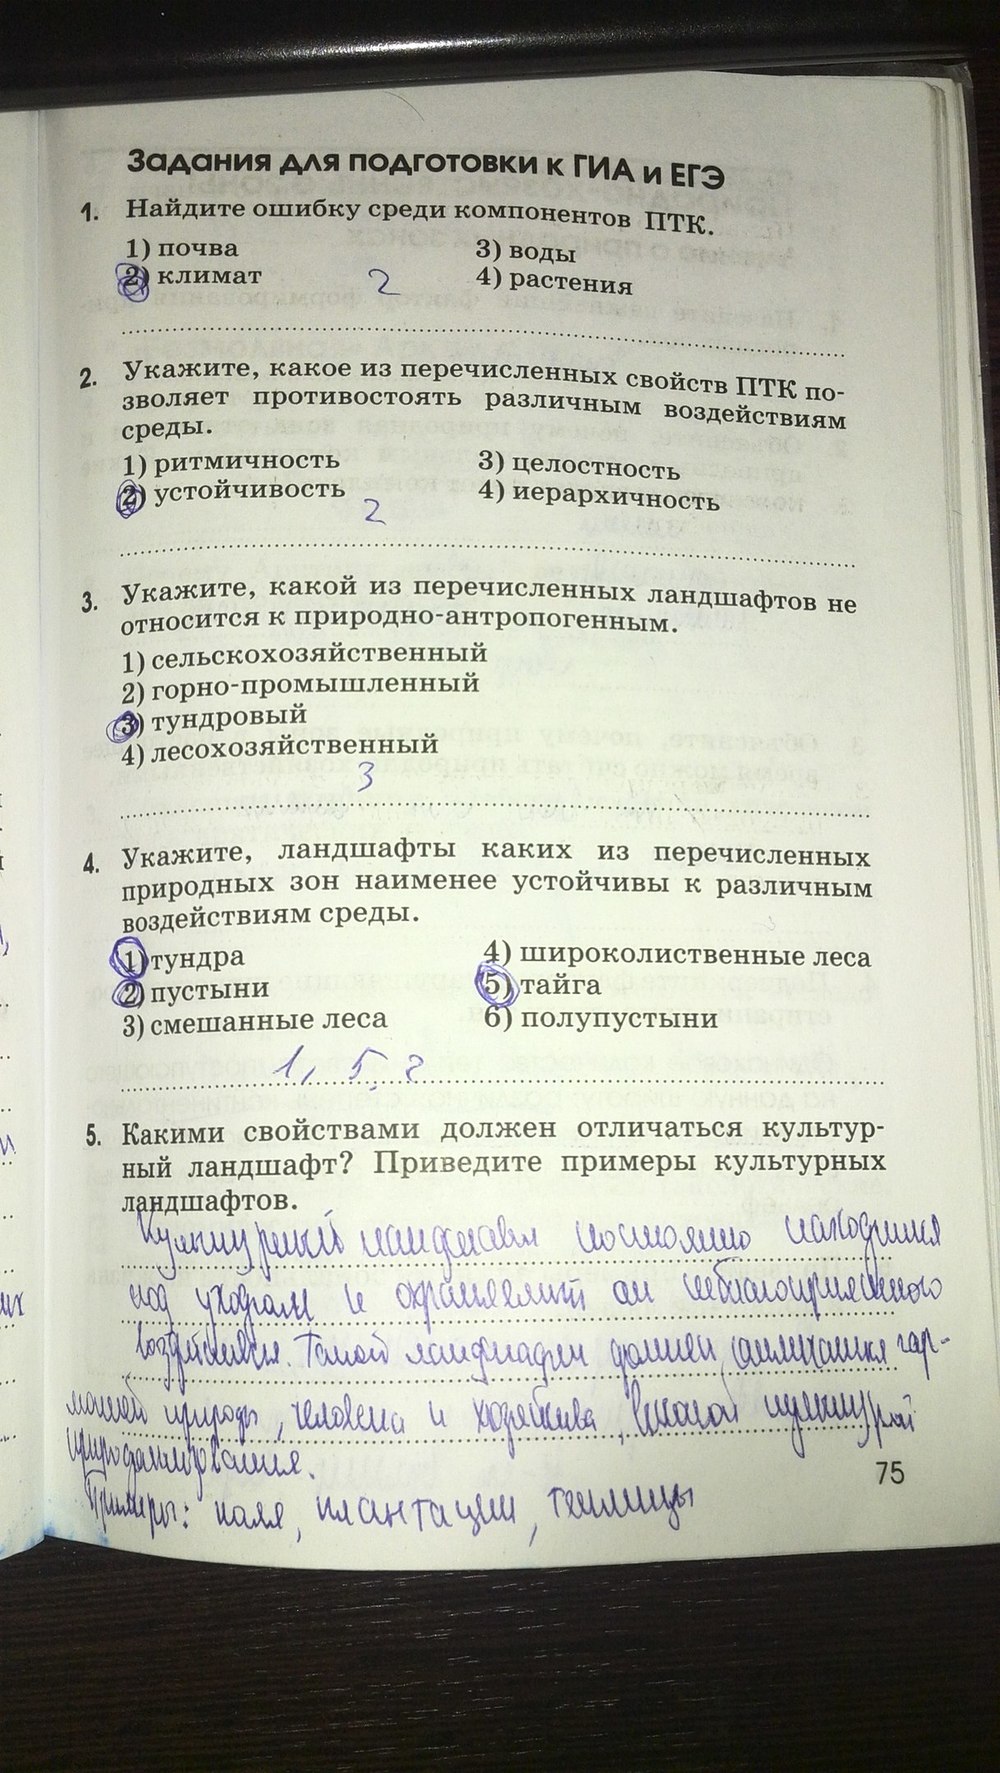 Задания для подготовки к ГИА и ЕГЭ
1. Найдите ошибку среди компонентов ПТК.
1) почва 3) воды
2) климат 4) растения
2
2. Укажите, какое из перечисленных свойств ПТК по-
зволяет противостоять различным воздействиям
среды.
1) ритмичность 3) целостность
2) устойчивость 4) иерархичность
2
3. Укажите, какой из перечисленных ландшафтов не
относится к природно-антропогенным.
1) сельскохозяйственный
2) горно-промышленный
3) тундровый
4) лесохозяйственный
3
4. Укажите, ландшафты каких из перечисленных
природных зон наименее устойчивы к различным
воздействиям среды.
1) тундра 4) широколиственные леса
2) пустыни 5) тайга
3) смешанные леса 6) полупустыни
1, 5, 2
5. Какими свойствами должен отличаться культур-
ный ландшафт? Приведите примеры культурных
ландшафтов.
Культурный ландшафт постоянно находится
под уходом и охраняемый от неблагоприятного
воздействия. Такой ландшафт должен отличаться гар-
монией природы, человека и хозяйства, высокой культурой
природопользования.
Примеры: поля, плантации, теплицы
75